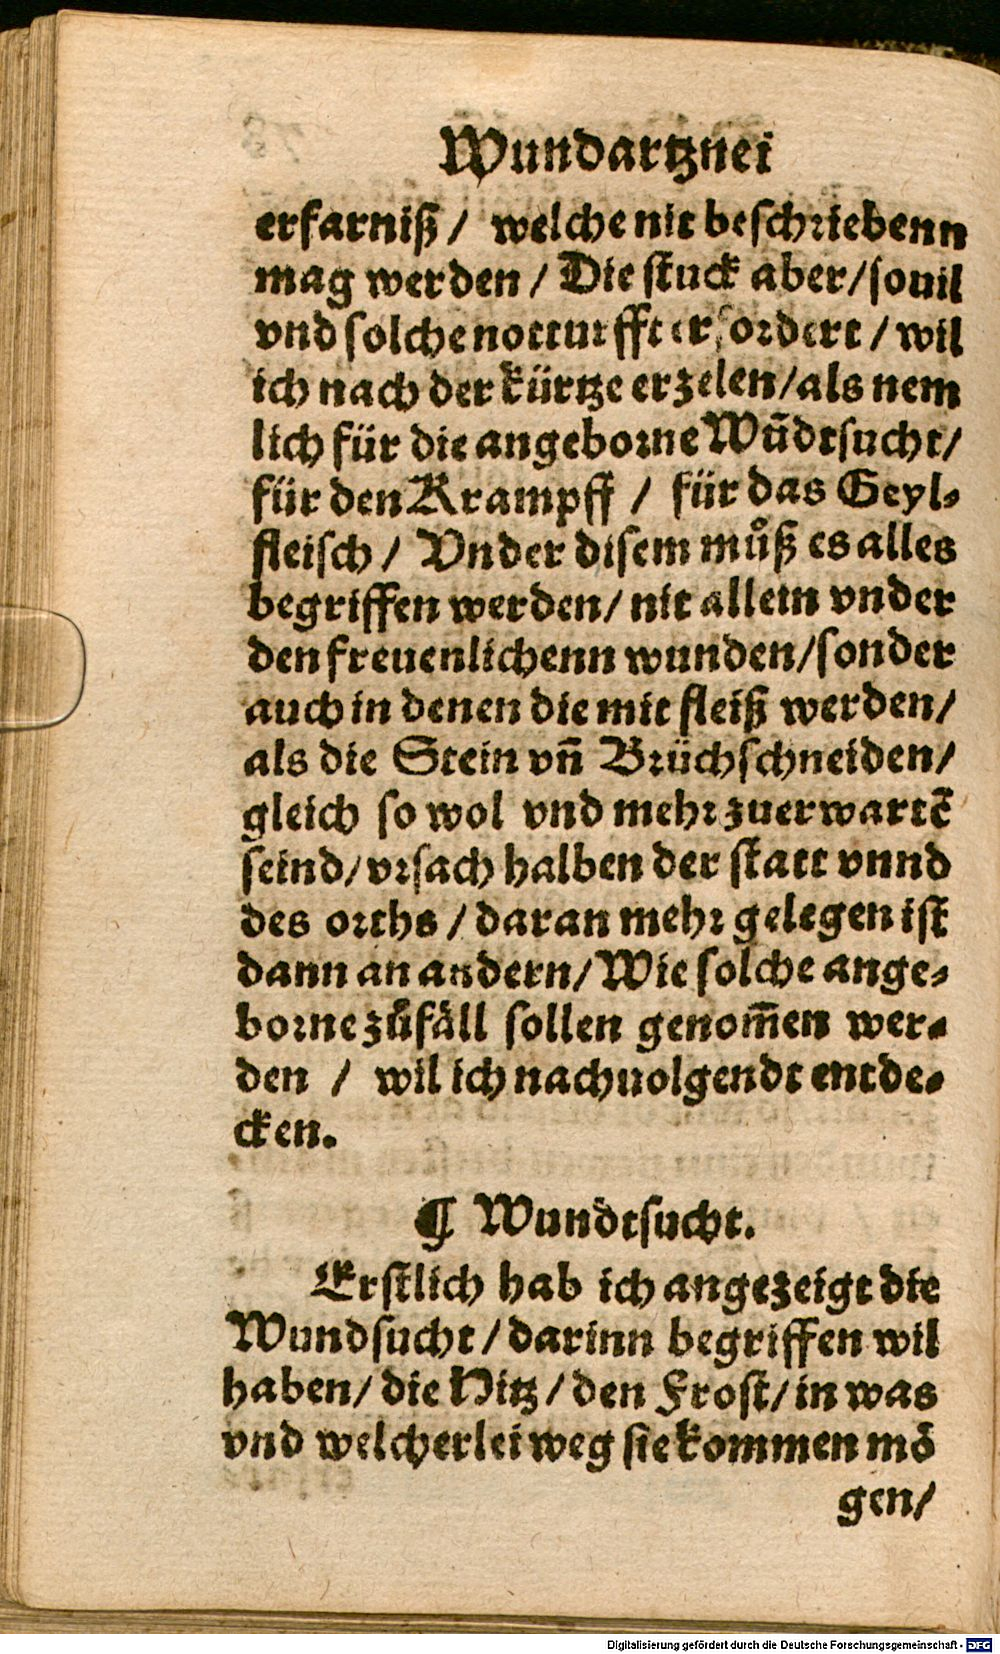 Wundartznei
erfarniß / welche nit beschriebenn
mag werden / Die stuck aber / souil
vnd solche notturfft erfordert / wil
ich nach der kürtze erzelen / als nem
lich für die angeborne Wūdtsucht /
für den Krampff / für das Geyl⸗
fleisch / Vnder disem můß es alles
begriffen werden / nit allein vnder
den freuenlichenn wunden / sonder
auch in denen die mit fleiß werden /
als die Stein vn̄ Brüchschneiden /
gleich so wol vnd mehr zuerwartē
seind / vrsach halben der statt vnnd
des orths / daran mehr gelegen ist
dann an andern / Wie solche ange⸗
borne zůfäll sollen genom̄en wer⸗
den / wil ich nachuolgendt entde⸗
cken.
¶ Wundtsucht.
Erstlich hab ich angezeigt die
Wundsucht / darinn begriffen wil
haben / die Hitz / den Frost / in was
vnd welcherlei weg sie kommen mö
gen /
Digitalisierung gefördert durch die Deutsche Forschungsgemeinschaft - DFG